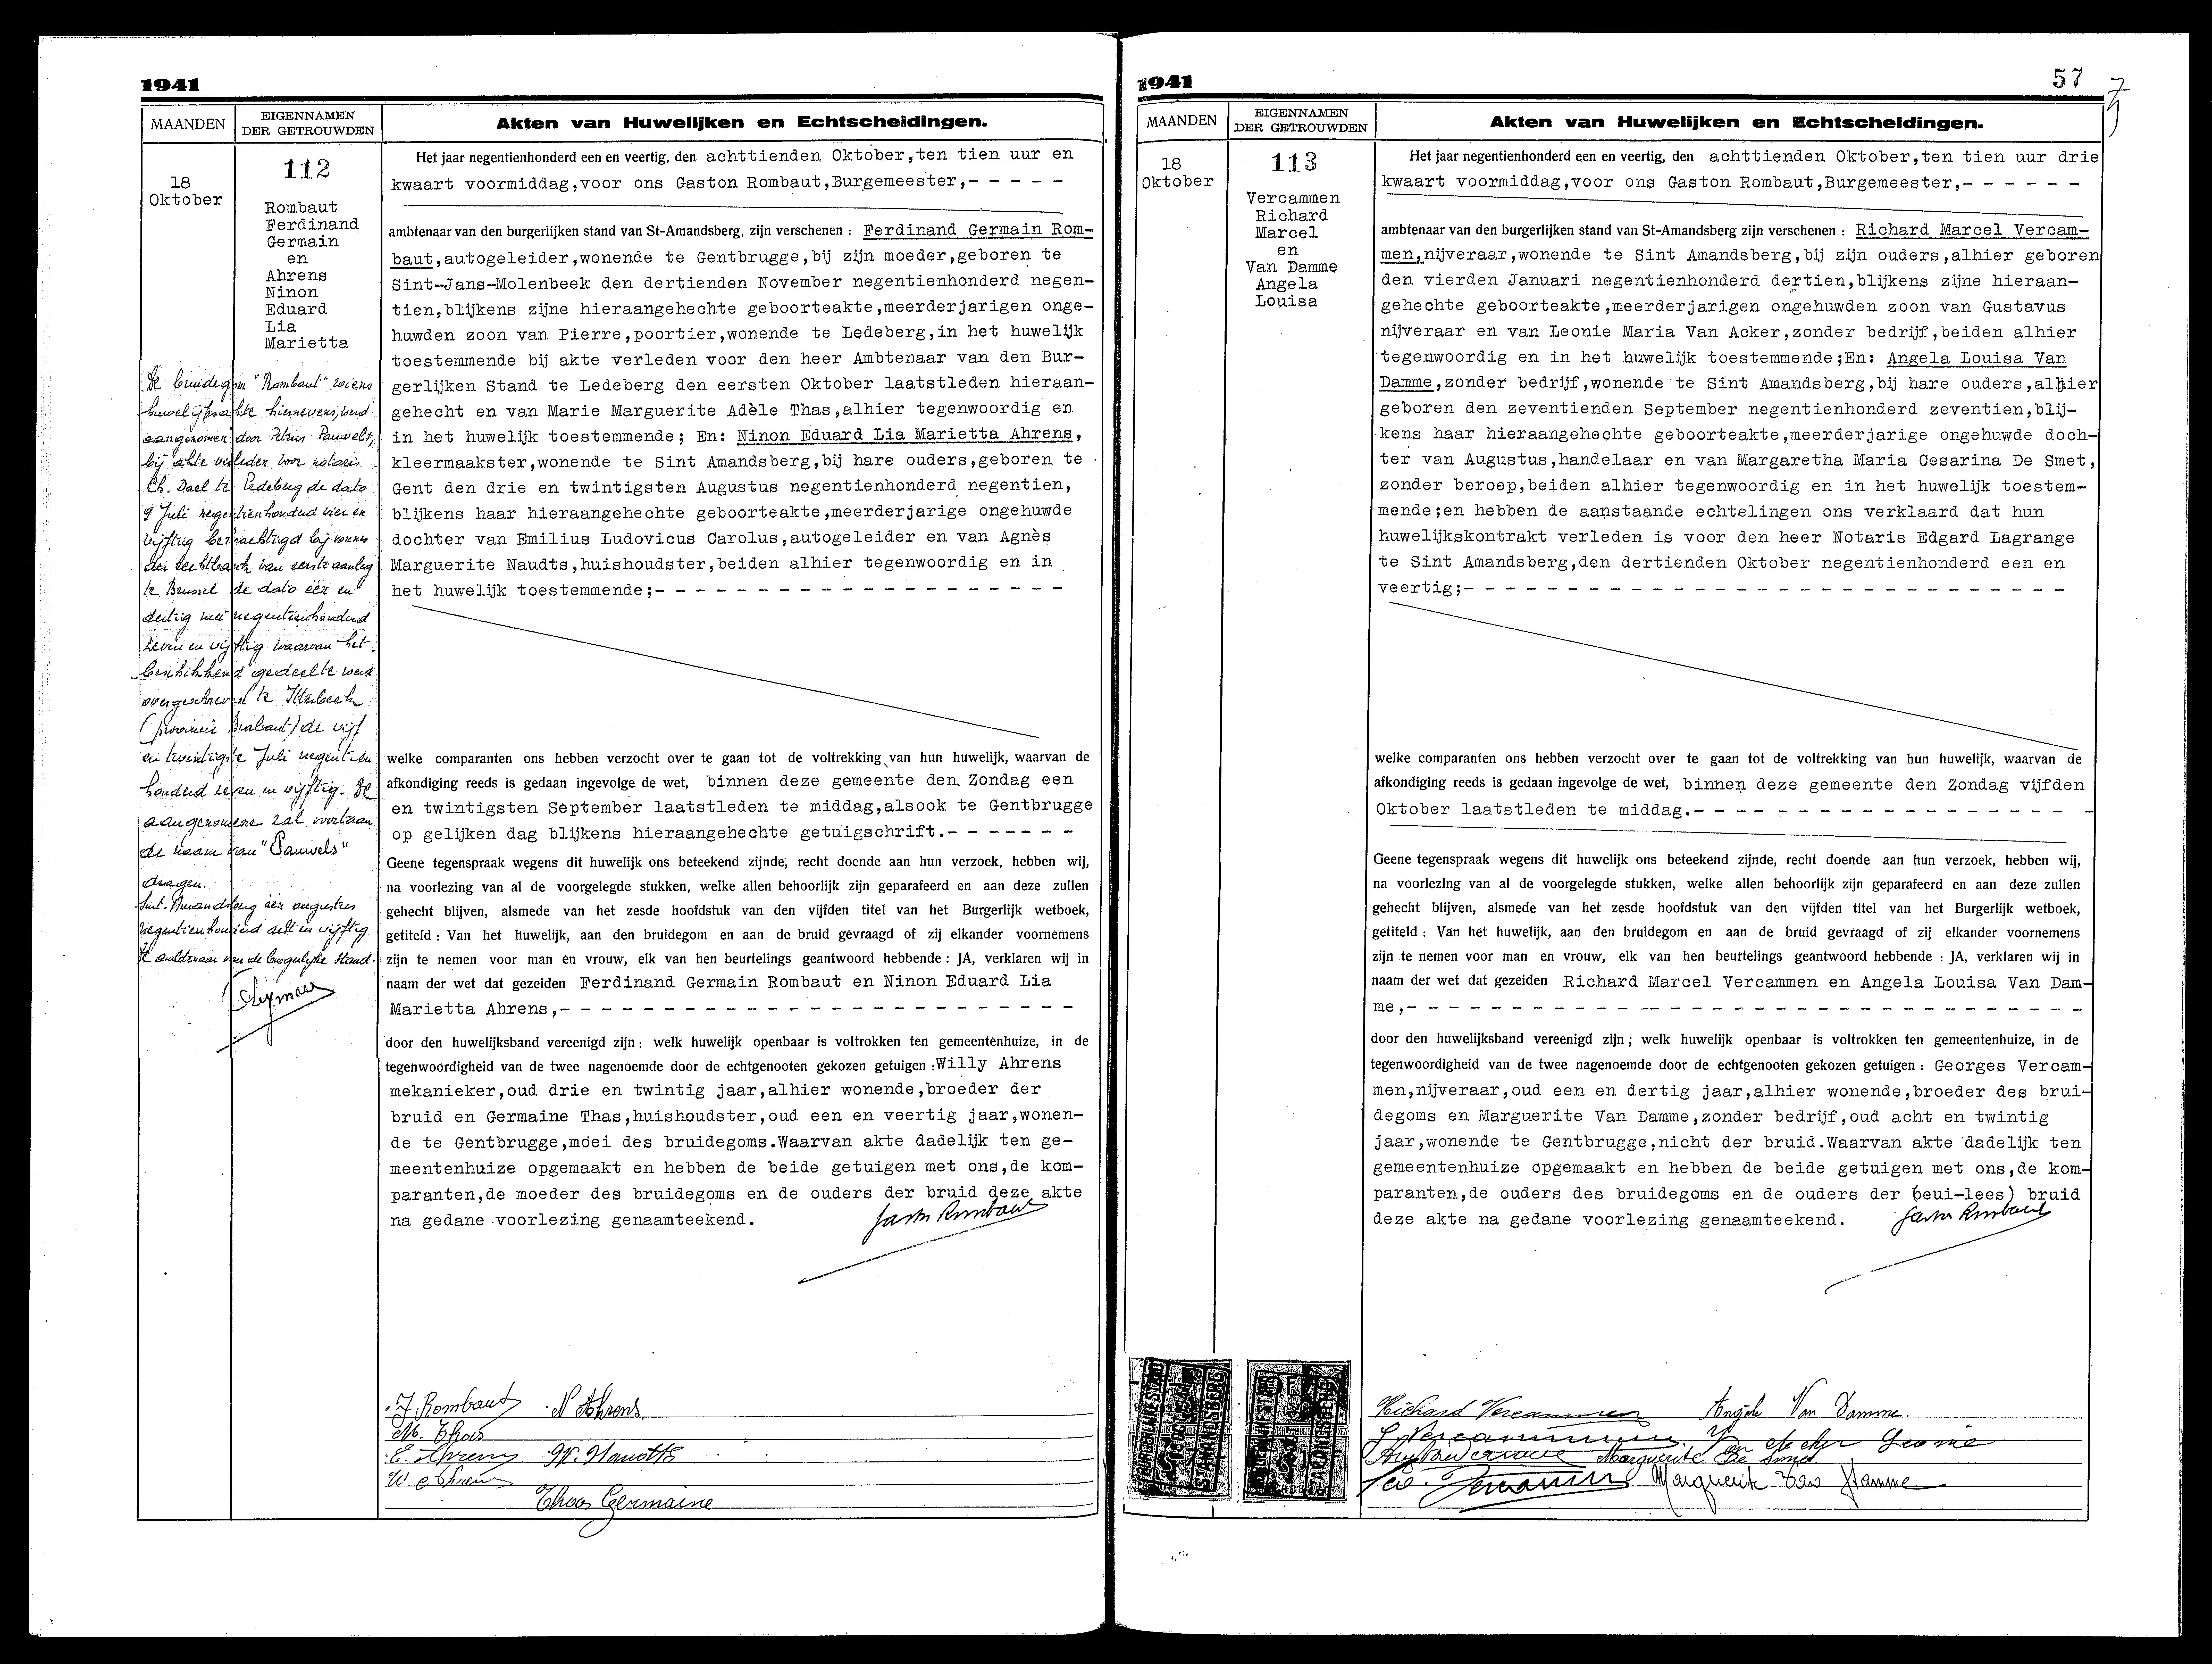 1941
MAANDEN
EIGENNAMEN
DER GETROUWDEN
Akten van Huwelijken en Echtscheidingen.
18
Oktober
112
Rombaut
Ferdinand
Germain
en
Ahrens
Ninon
Eduard
Lia
Marietta
De bruidegom "Rombaut" wiens
huwelijksakte hiernevens, werd
aangenomen door Petrus Pauwels,
bij akte verleden voor notaris
Ch. Dael te Ledeberg de dato
9 Juli negentienhonderd vier en
vijftig bekrachtigd bij vonnis
der rechtbank van eerste aanleg
te Brussel de dato één en
dertig mei negentienhonderd
zeven en vijftig waarvan het
beschikkend gedeelte werd
overgeschreven te Itterbeek
(provincie Brabant) de vijf
en twintigste Juli negentien
honderd zeven en vijftig. De
aangenomene zal voortaan
de naam van "Pauwels"
dragen.
Sint-Amandsberg één augustus
negentienhonderd acht en vijftig
De ambtenaar van de burgerlijke stand.
Het jaar negentienhonderd een en veertig, den achttienden Oktober,ten tien uur en
kwaart voormiddag,voor ons Gaston Rombaut,Burgemeester,- - - - -
ambtenaar van den burgerlijken stand van St-Amandsberg, zijn verschenen : Ferdinand Germain Rom-
baut,autogeleider,wonende te Gentbrugge,bij zijn moeder,geboren te
Sint-Jans-Molenbeek den dertienden November negentienhonderd negen-
tien,blijkens zijne hieraangehechte geboorteakte,meerderjarigen onge-
huwden zoon van Pierre,poortier,wonende te Ledeberg,in het huwelijk
toestemmende bij akte verleden voor den heer Ambtenaar van den Bur-
gerlijken Stand te Ledeberg den eersten Oktober laatstleden hieraan-
gehecht en van Marie Marguerite Adèle Thas,alhier tegenwoordig en
in het huwelijk toestemmende; En: Ninon Eduard Lia Marietta Ahrens,
kleermaakster,wonende te Sint Amandsberg,bij hare ouders,geboren te
Gent den drie en twintigsten Augustus negentienhonderd negentien,
blijkens haar hieraangehechte geboorteakte,meerderjarige ongehuwde
dochter van Emilius Ludovicus Carolus,autogeleider en van Agnès
Marguerite Naudts,huishoudster,beiden alhier tegenwoordig en in
het huwelijk toestemmende;- - - - - - - - - - - - - - - - - - -
welke comparanten ons hebben verzocht over te gaan tot de voltrekking van hun huwelijk, waarvan de
afkondiging reeds is gedaan ingevolge de wet, binnen deze gemeente den Zondag een
en twintigsten September laatstleden te middag,alsook te Gentbrugge
op gelijken dag blijkens hieraangehechte getuigschrift.- - - - - -
Geene tegenspraak wegens dit huwelijk ons beteekend zijnde, recht doende aan hun verzoek, hebben wij,
na voorlezing van al de voorgelegde stukken, welke allen behoorlijk zijn geparafeerd en aan deze zullen
gehecht blijven, alsmede van het zesde hoofdstuk van den vijfden titel van het Burgerlijk wetboek,
getiteld : Van het huwelijk, aan den bruidegom en aan de bruid gevraagd of zij elkander voornemens
zijn te nemen voor man en vrouw, elk van hen beurtelings geantwoord hebbende : JA, verklaren wij in
naam der wet dat gezeiden Ferdinand Germain Rombaut en Ninon Eduard Lia
Marietta Ahrens,- - - - - - - - - - - - - - - - - - - - - - - -
door den huwelijksband vereenigd zijn ; welk huwelijk openbaar is voltrokken ten gemeentenhuize, in de
tegenwoordigheid van de twee nagenoemde door de echtgenooten gekozen getuigen :Willy Ahrens
mekanieker,oud drie en twintig jaar,alhier wonende,broeder der
bruid en Germaine Thas,huishoudster,oud een en veertig jaar,wonen-
de te Gentbrugge,moei des bruidegoms.Waarvan akte dadelijk ten ge-
meentenhuize opgemaakt en hebben de beide getuigen met ons,de kom-
paranten,de moeder des bruidegoms en de ouders der bruid deze akte
na gedane voorlezing genaamteekend.
Gaston Rombaut
F. Rombaut N Ahrens
M. Thas
E. Ahrens M. Naudts
W Ahrens
Thas Germaine
1941
57
MAANDEN
EIGENNAMEN
DER GETROUWDEN
Akten van Huwelijken en Echtscheidingen.
18
Oktober
113
Vercammen
Richard
Marcel
en
Van Damme
Angela
Louisa
Het jaar negentienhonderd een en veertig, den achttienden Oktober,ten tien uur drie
kwaart voormiddag,voor ons Gaston Rombaut,Burgemeester,- - - - - -
ambtenaar van den burgerlijken stand van St-Amandsberg zijn verschenen : Richard Marcel Vercam-
men,nijveraar,wonende te Sint Amandsberg,bij zijn ouders,alhier geboren
den vierden Januari negentienhonderd dertien,blijkens zijne hieraan-
gehechte geboorteakte,meerderjarigen ongehuwden zoon van Gustavus
nijveraar en van Leonie Maria Van Acker,zonder bedrijf,beiden alhier
tegenwoordig en in het huwelijk toestemmende;En: Angela Louisa Van
Damme,zonder bedrijf,wonende te Sint Amandsberg,bij hare ouders,alhier
geboren den zeventienden September negentienhonderd zeventien,blij-
kens haar hieraangehechte geboorteakte,meerderjarige ongehuwde doch-
ter van Augustus,handelaar en van Margaretha Maria Cesarina De Smet,
zonder beroep,beiden alhier tegenwoordig en in het huwelijk toestem-
mende;en hebben de aanstaande echtelingen ons verklaard dat hun
huwelijkskontrakt verleden is voor den heer Notaris Edgard Lagrange
te Sint Amandsberg,den dertienden Oktober negentienhonderd een en
veertig;- - - - - - - - - - - - - - - - - - - - - - - - - - - -
welke comparanten ons hebben verzocht over te gaan tot de voltrekking van hun huwelijk, waarvan de
afkondiging reeds is gedaan ingevolge de wet, binnen deze gemeente den Zondag vijfden
Oktober laatstleden te middag.- - - - - - - - - - - - - - - - - -
Geene tegenspraak wegens dit huwelijk ons beteekend zijnde, recht doende aan hun verzoek, hebben wij,
na voorlezing van al de voorgelegde stukken, welke allen behoorlijk zijn geparafeerd en aan deze zullen
gehecht blijven, alsmede van het zesde hoofdstuk van den vijfden titel van het Burgerlijk wetboek,
getiteld : Van het huwelijk, aan den bruidegom en aan de bruid gevraagd of zij elkander voornemens
zijn te nemen voor man en vrouw, elk van hen beurtelings geantwoord hebbende : JA, verklaren wij in
naam der wet dat gezeiden Richard Marcel Vercammen en Angela Louisa Van Dam-
me,- - - - - - - - - - - - - - - - - - - - - - - - - - - - - -
door den huwelijksband vereenigd zijn ; welk huwelijk openbaar is voltrokken ten gemeentenhuize, in de
tegenwoordigheid van de twee nagenoemde door de echtgenooten gekozen getuigen : Georges Vercam-
men,nijveraar,oud een en dertig jaar,alhier wonende,broeder des brui-
degoms en Marguerite Van Damme,zonder bedrijf,oud acht en twintig
jaar,wonende te Gentbrugge,nicht der bruid.Waarvan akte dadelijk ten
gemeentenhuize opgemaakt en hebben de beide getuigen met ons,de kom-
paranten,de ouders des bruidegoms en de ouders der (beui-lees) bruid
deze akte na gedane voorlezing genaamteekend.
Gaston Rombaut
BURGERLIJKE STAND
ST AMANDSBERG
BURGERLIJKE STAND
ST AMANDSBERG
Richard Vercammen Angèle Van Damme.
Vercammen Van Acker Leonie
Marguerite De Smet
Geo. Vercammen Marguerite Van Damme